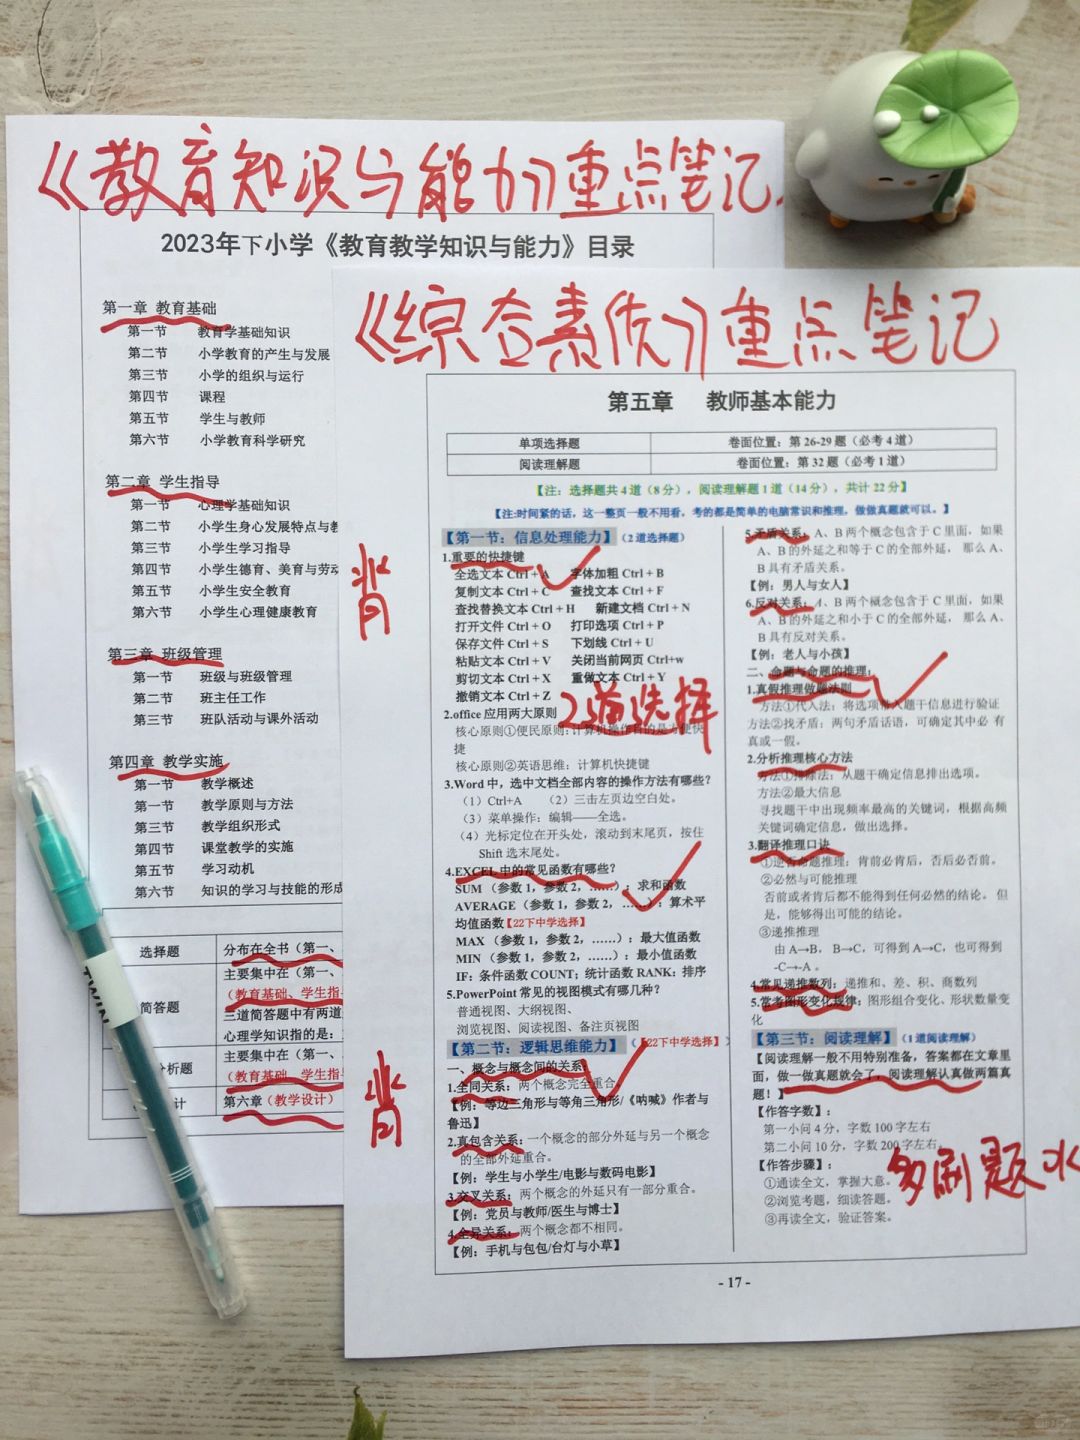 《教育知识与能力》重点笔记
2023年下小学《教育教学知识与能力》目录
第一章 教育基础
第一节 教育学基础知识
第二节 小学教育的产生与发展
第三节 小学的组织与运行
第四节 课程
第五节 学生与教师
第六节 小学教育科学研究
第二章 学生指导
第一节 心理学基础知识
第二节 小学生身心发展特点与
第三节 小学生学习指导
第四节 小学生德育、美育与劳动
第五节 小学生安全教育
第六节 小学生心理健康教育
第三章 班级管理
第一节 班级与班级管理
第二节 班主任工作
第三节 班队活动与课外活动
第四章 教学实施
第一节 教学概述
第一节 教学原则与方法
第三节 教学组织形式
第四节 课堂教学的实施
第五节 学习动机
第六节 知识的学习与技能的形成
选择题 分布在全书（第一、
简答题 主要集中在（第一、
（教育基础、学生指导
三道简答题中有两道
心理学知识指的是：
析题 主要集中在（第一、
（教育基础、学生指导
计 第六章（教学设计）
TWIN
《综合素质》重点笔记
第五章 教师基本能力
单项选择题 卷面位置：第 26-29 题（必考 4 道）
阅读理解题 卷面位置：第 32 题（必考 1 道）
【注：选择题共 4 道（8 分），阅读理解题 1 道（14 分），共计 22 分】
【注:时间紧的话，这一整页一般不用看，考的都是简单的电脑常识和推理，做做真题就可以。】
【第一节：信息处理能力】（2 道选择题）
1.重要的快捷键
背
全选文本 Ctrl + A 字体加粗 Ctrl + B
复制文本 Ctrl + C 查找文本 Ctrl + F
查找替换文本 Ctrl + H 新建文档 Ctrl + N
打开文件 Ctrl + O 打印选项 Ctrl + P
保存文件 Ctrl + S 下划线 Ctrl + U
粘贴文本 Ctrl + V 关闭当前网页 Ctrl+w
剪切文本 Ctrl + X 重做文本 Ctrl + Y
撤销文本 Ctrl + Z
2道选择
2.office 应用两大原则
核心原则①便民原则:计算机操作目的是方便快
捷
核心原则②英语思维：计算机快捷键
3.Word 中，选中文档全部内容的操作方法有哪些？
（1）Ctrl+A （2）三击左页边空白处。
（3）菜单操作：编辑——全选。
（4）光标定位在开头处，滚动到末尾页，按住
Shift 选末尾处。
4.EXCEL 中的常见函数有哪些？
SUM （参数 1，参数 2，……）：求和函数
AVERAGE（参数 1，参数 2，……）：算术平
均值函数【22下中学选择】
MAX （参数 1，参数 2，……）：最大值函数
MIN （参数 1，参数 2，……）：最小值函数
IF：条件函数 COUNT；统计函数 RANK：排序
5.PowerPoint 常见的视图模式有哪几种？
普通视图、大纲视图、
浏览视图、阅读视图、备注页视图
【第二节：逻辑思维能力】（【22下中学选择】
一、概念与概念间的关系
背
1.全同关系：两个概念完全重合。
【例：等边三角形与等角三角形/《呐喊》作者与
鲁迅】
2.真包含关系：一个概念的部分外延与另一个概念
的全部外延重合。
【例：学生与小学生/电影与数码电影】
3.交叉关系：两个概念的外延只有一部分重合。
【例：党员与教师/医生与博士】
4.全异关系：两个概念都不相同。
【例：手机与包包/台灯与小草】
5.矛盾关系：A、B 两个概念包含于 C 里面，如果
A、B 的外延之和等于 C 的全部外延， 那么 A、
B 具有矛盾关系。
【例：男人与女人】
6.反对关系：A、B 两个概念包含于 C 里面，如果
A、B 的外延之和小于 C 的全部外延， 那么 A、
B 具有反对关系。
【例：老人与小孩】
二、命题与命题的推理：
1.真假推理做题法则
方法①代入法：将选项带入题干信息进行验证
方法②找矛盾：两句矛盾话语，可确定其中必 有
真或一假。
2.分析推理核心方法
方法①排除法：从题干确定信息排出选项。
方法②最大信息
寻找题干中出现频率最高的关键词，根据高频
关键词确定信息，做出选择。
3.翻译推理口诀
①逆否命题推理：肯前必肯后，否后必否前。
②必然与可能推理
否前或者肯后都不能得到任何必然的结论。但
是，能够得出可能的结论。
③递推推理
由 A→B， B→C，可得到 A→C，也可得到
-C→-A 。
4.常见递推数列：递推和、差、积、商数列
5.常考图形变化规律：图形组合变化、形状数量变
化
【第三节：阅读理解】（1 道阅读理解）
【阅读理解一般不用特别准备，答案都在文章里
面，做一做真题就会了，阅读理解认真做两篇真
题！】
【作答字数】：
第一小问 4 分，字数 100 字左右
第二小问 10 分，字数 200 字左右。
【作答步骤】：
①通读全文，掌握大意。
②浏览考题，细读答题。
③再读全文，验证答案。
多刷题
- 17 -